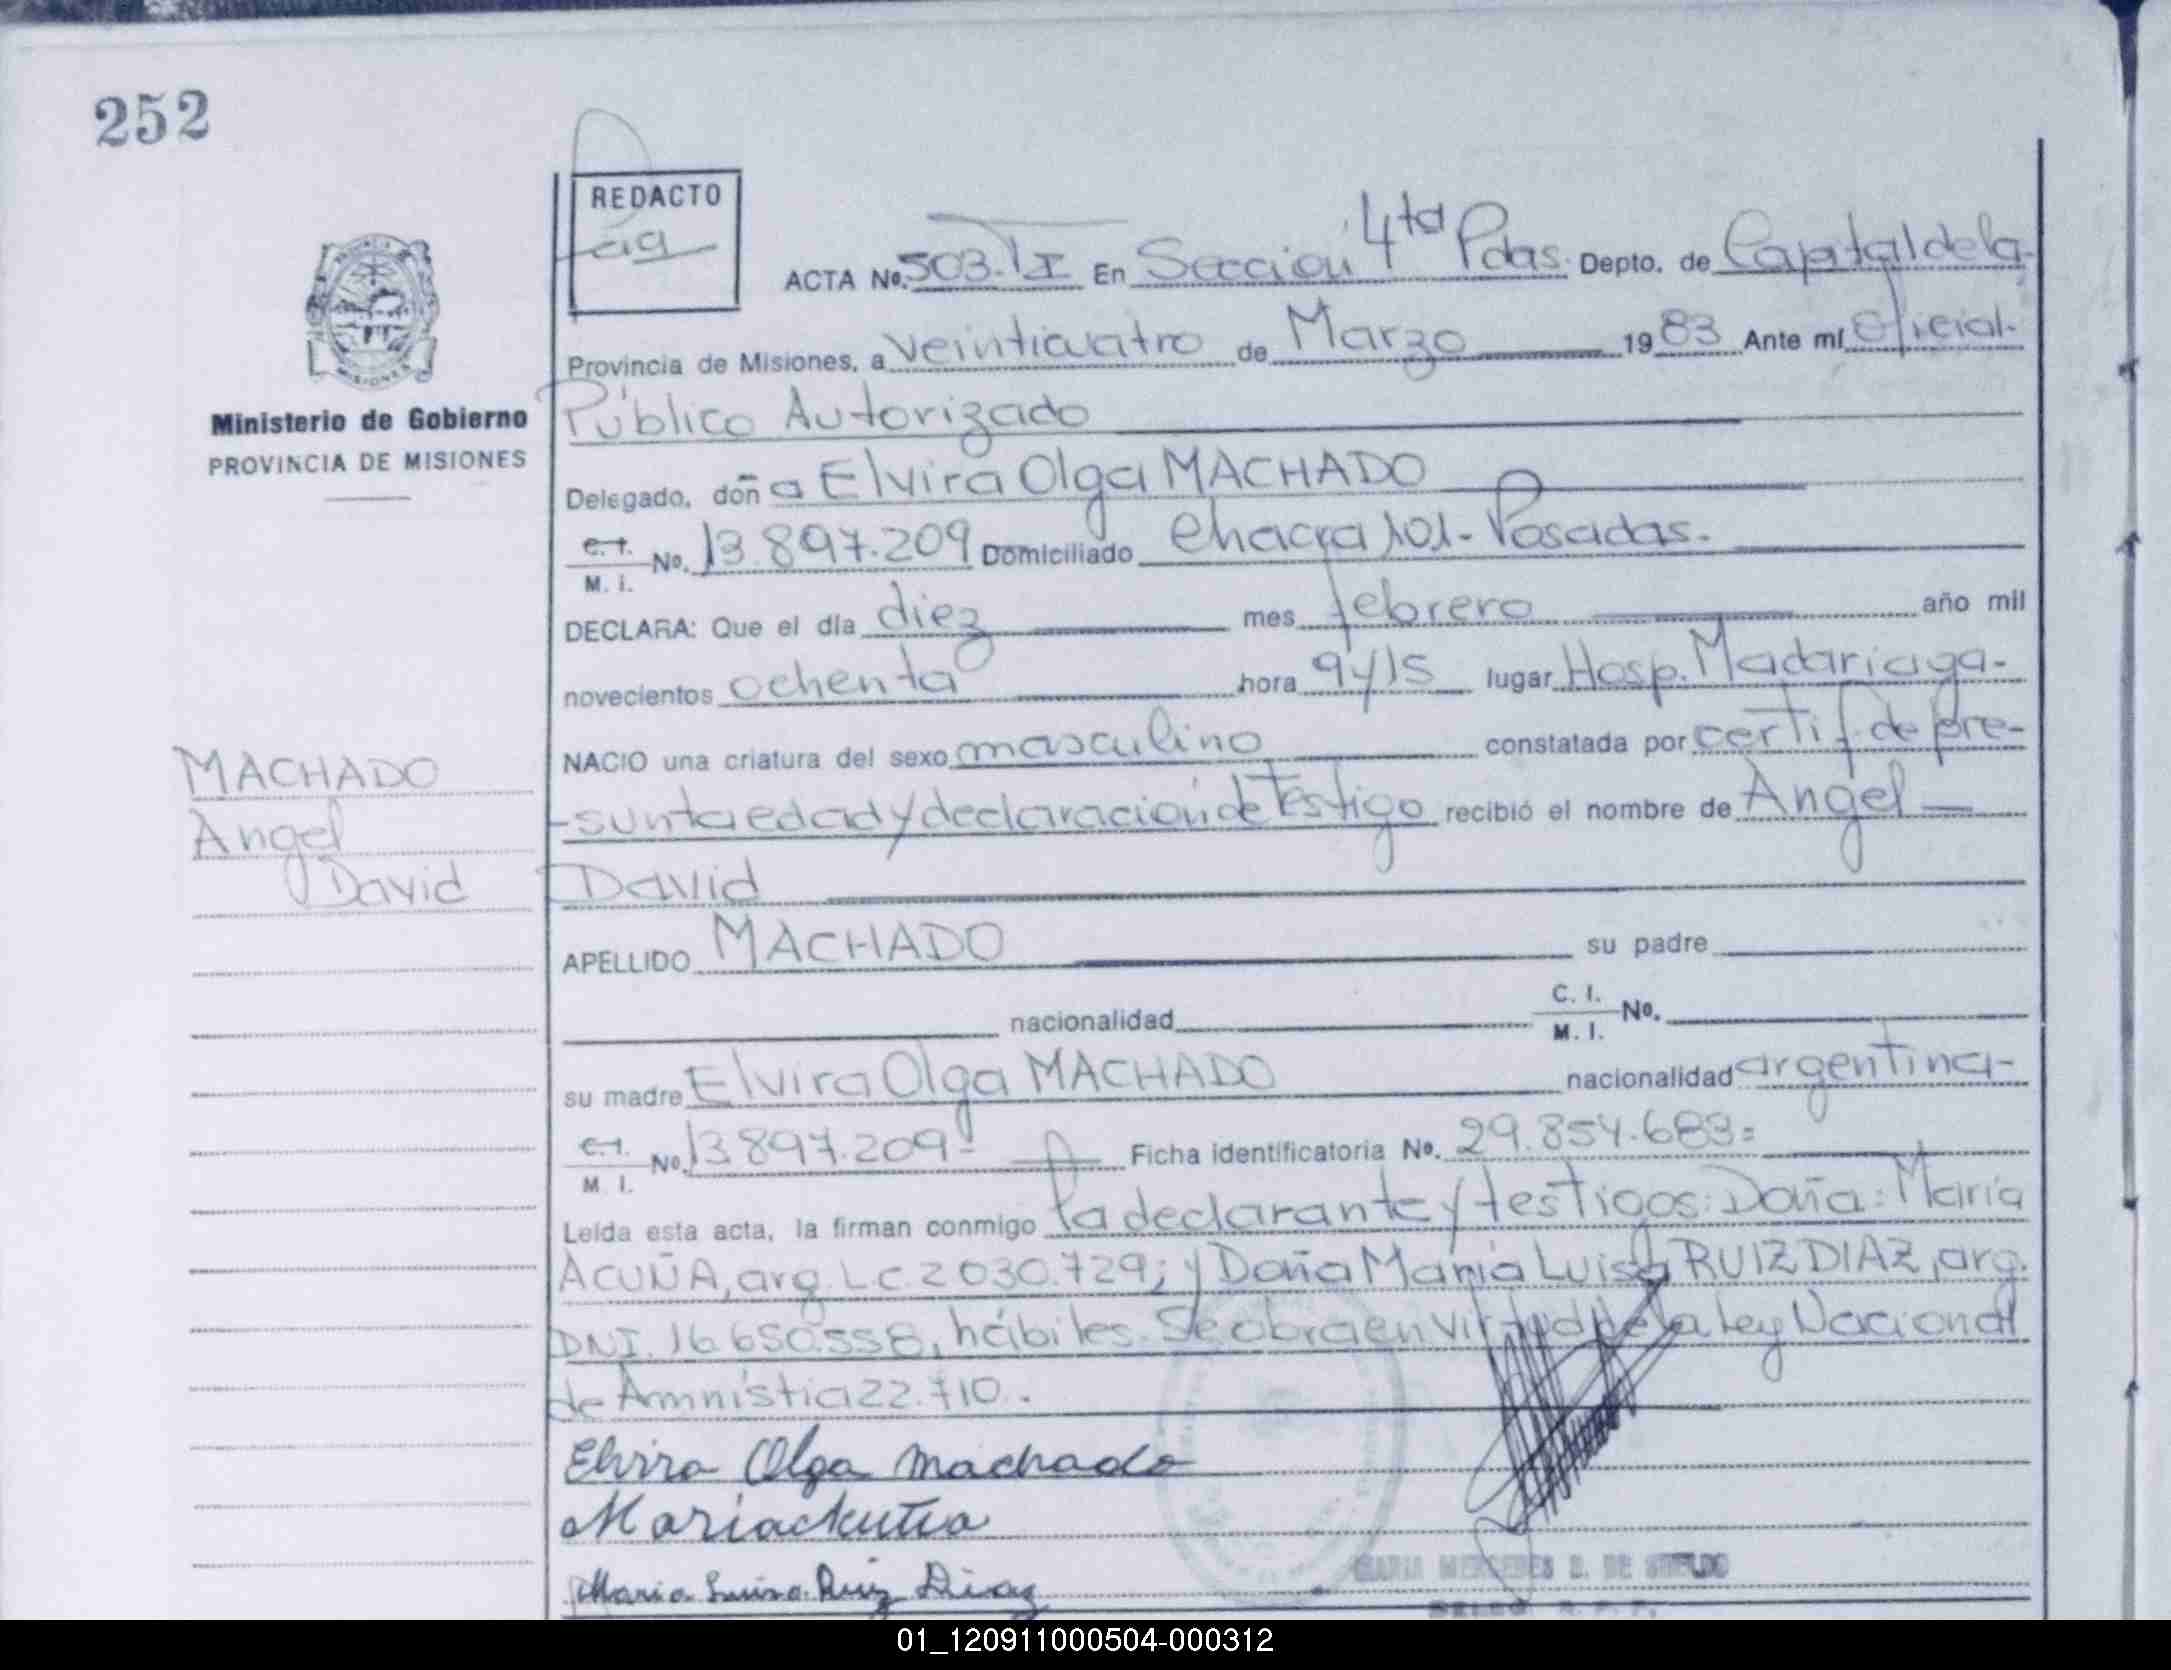 252
REDACTO
ag
ACTA No. 503. TI En Sección 4ta Pdas. Depto. de Capital de la
Provincia de Misiones, a veinticuatro de Marzo 1983 Ante mí Oficial
Público Autorizado
Ministerio de Gobierno
PROVINCIA DE MISIONES
MISIONES
Delegado, doña Elvira Olga MACHADO
C. I.
M. I. No. 13.897.209 Domiciliado Chacra 101 - Posadas.
DECLARA: Que el día diez mes febrero año mil
novecientos ochenta hora 9 y 15 lugar Hosp. Madariaga-
NACIO una criatura del sexo masculino constatada por certif. de pre-
-sunta edad y declaración de Testigo recibió el nombre de Angel
David
MACHADO
Angel
David
APELLIDO MACHADO su padre
nacionalidad C. I.
M. I. No.
su madre Elvira Olga MACHADO nacionalidad argentina-
C. I.
M. I. No. 13.897.209- Ficha identificatoria No. 29.854.683=
Leída esta acta, la firman conmigo la declarante y testigos: Doña: María
ACUÑA, arg. L.C. 2 030.729; y Doña María Luisa RUIZ DIAZ, arg.
DNI. 16.650.558, hábiles. Se obra en virtud de la Ley Nacional
de Amnistía 22.710.
Elvira Olga Machado
Maria Acuña
Maria Luisa Ruiz Diaz
MARIA MERCEDES
01_120911000504-000312